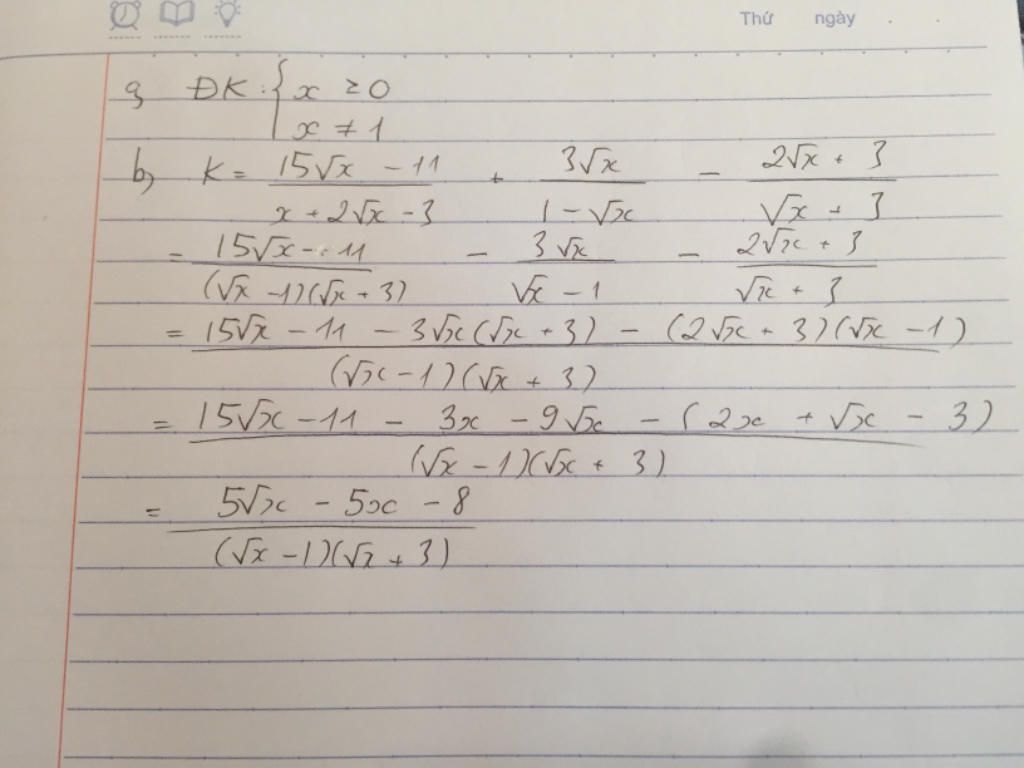 Thứ ngày . .
a, ĐK: { x ≥ 0
x ≠ 1
b, K = (15√x - 11)/(x + 2√x - 3) + (3√x)/(1 - √x) - (2√x + 3)/(√x + 3)
= (15√x - 11)/((√x - 1)(√x + 3)) - (3√x)/(√x - 1) - (2√x + 3)/(√x + 3)
= (15√x - 11 - 3√x(√x + 3) - (2√x + 3)(√x - 1))/((√x - 1)(√x + 3))
= (15√x - 11 - 3x - 9√x - (2x + √x - 3))/((√x - 1)(√x + 3))
= (5√x - 5x - 8)/((√x - 1)(√x + 3))